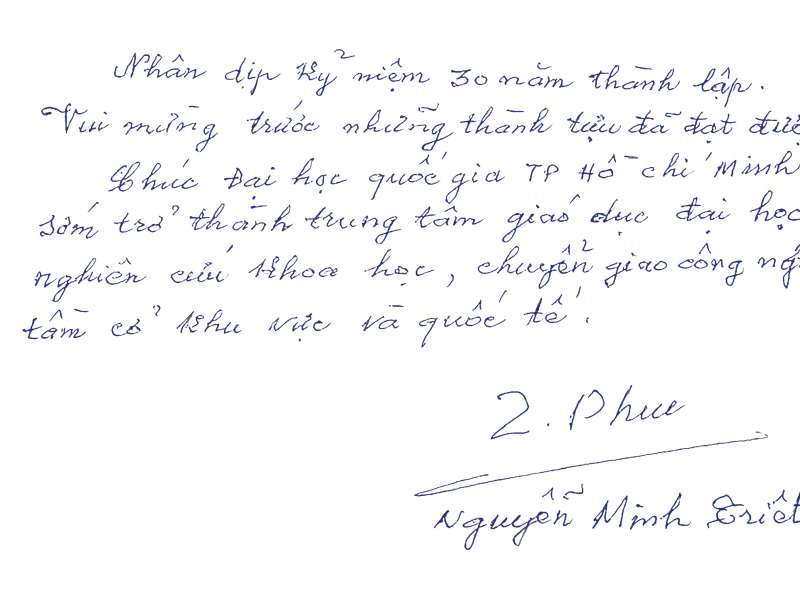 Nhân dịp kỷ niệm 30 năm thành lập.
Vui mừng trước những thành tựu đã đạt đượ
Chúc Đại học quốc gia TP Hồ chí Minh
sớm trở thành trung tâm giáo dục đại học
nghiên cứu khoa học, chuyển giao công ngh
tầm cở khu vực và quốc tế.
Nguyễn Minh Triết